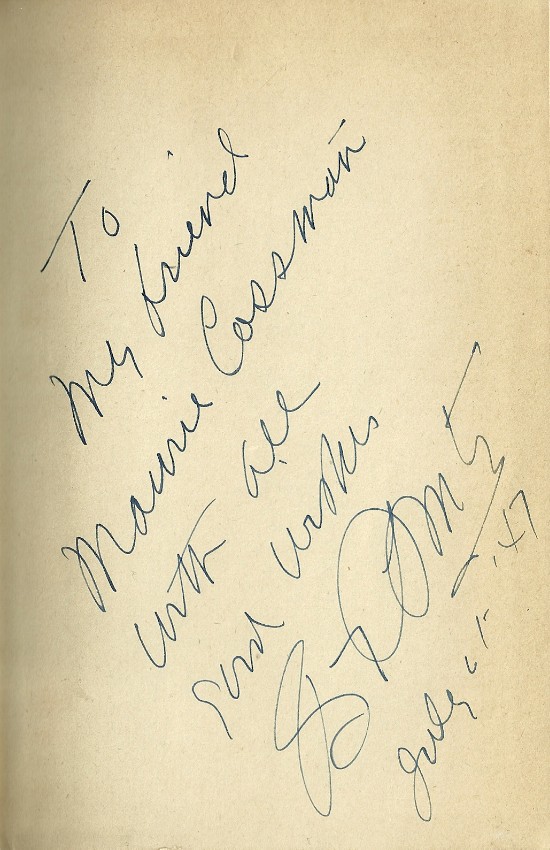 To
My friend
Maurie Cossman
with all
good wishes
July '47